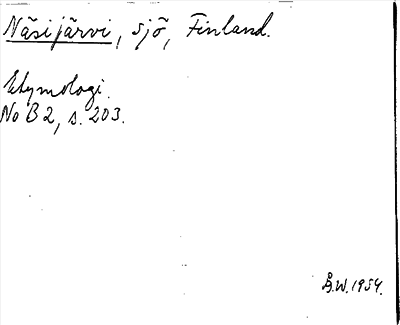 Näsijärvi, sjö, Finland.
Etymologi.
No B 2, s. 203.
Å.W. 1954.